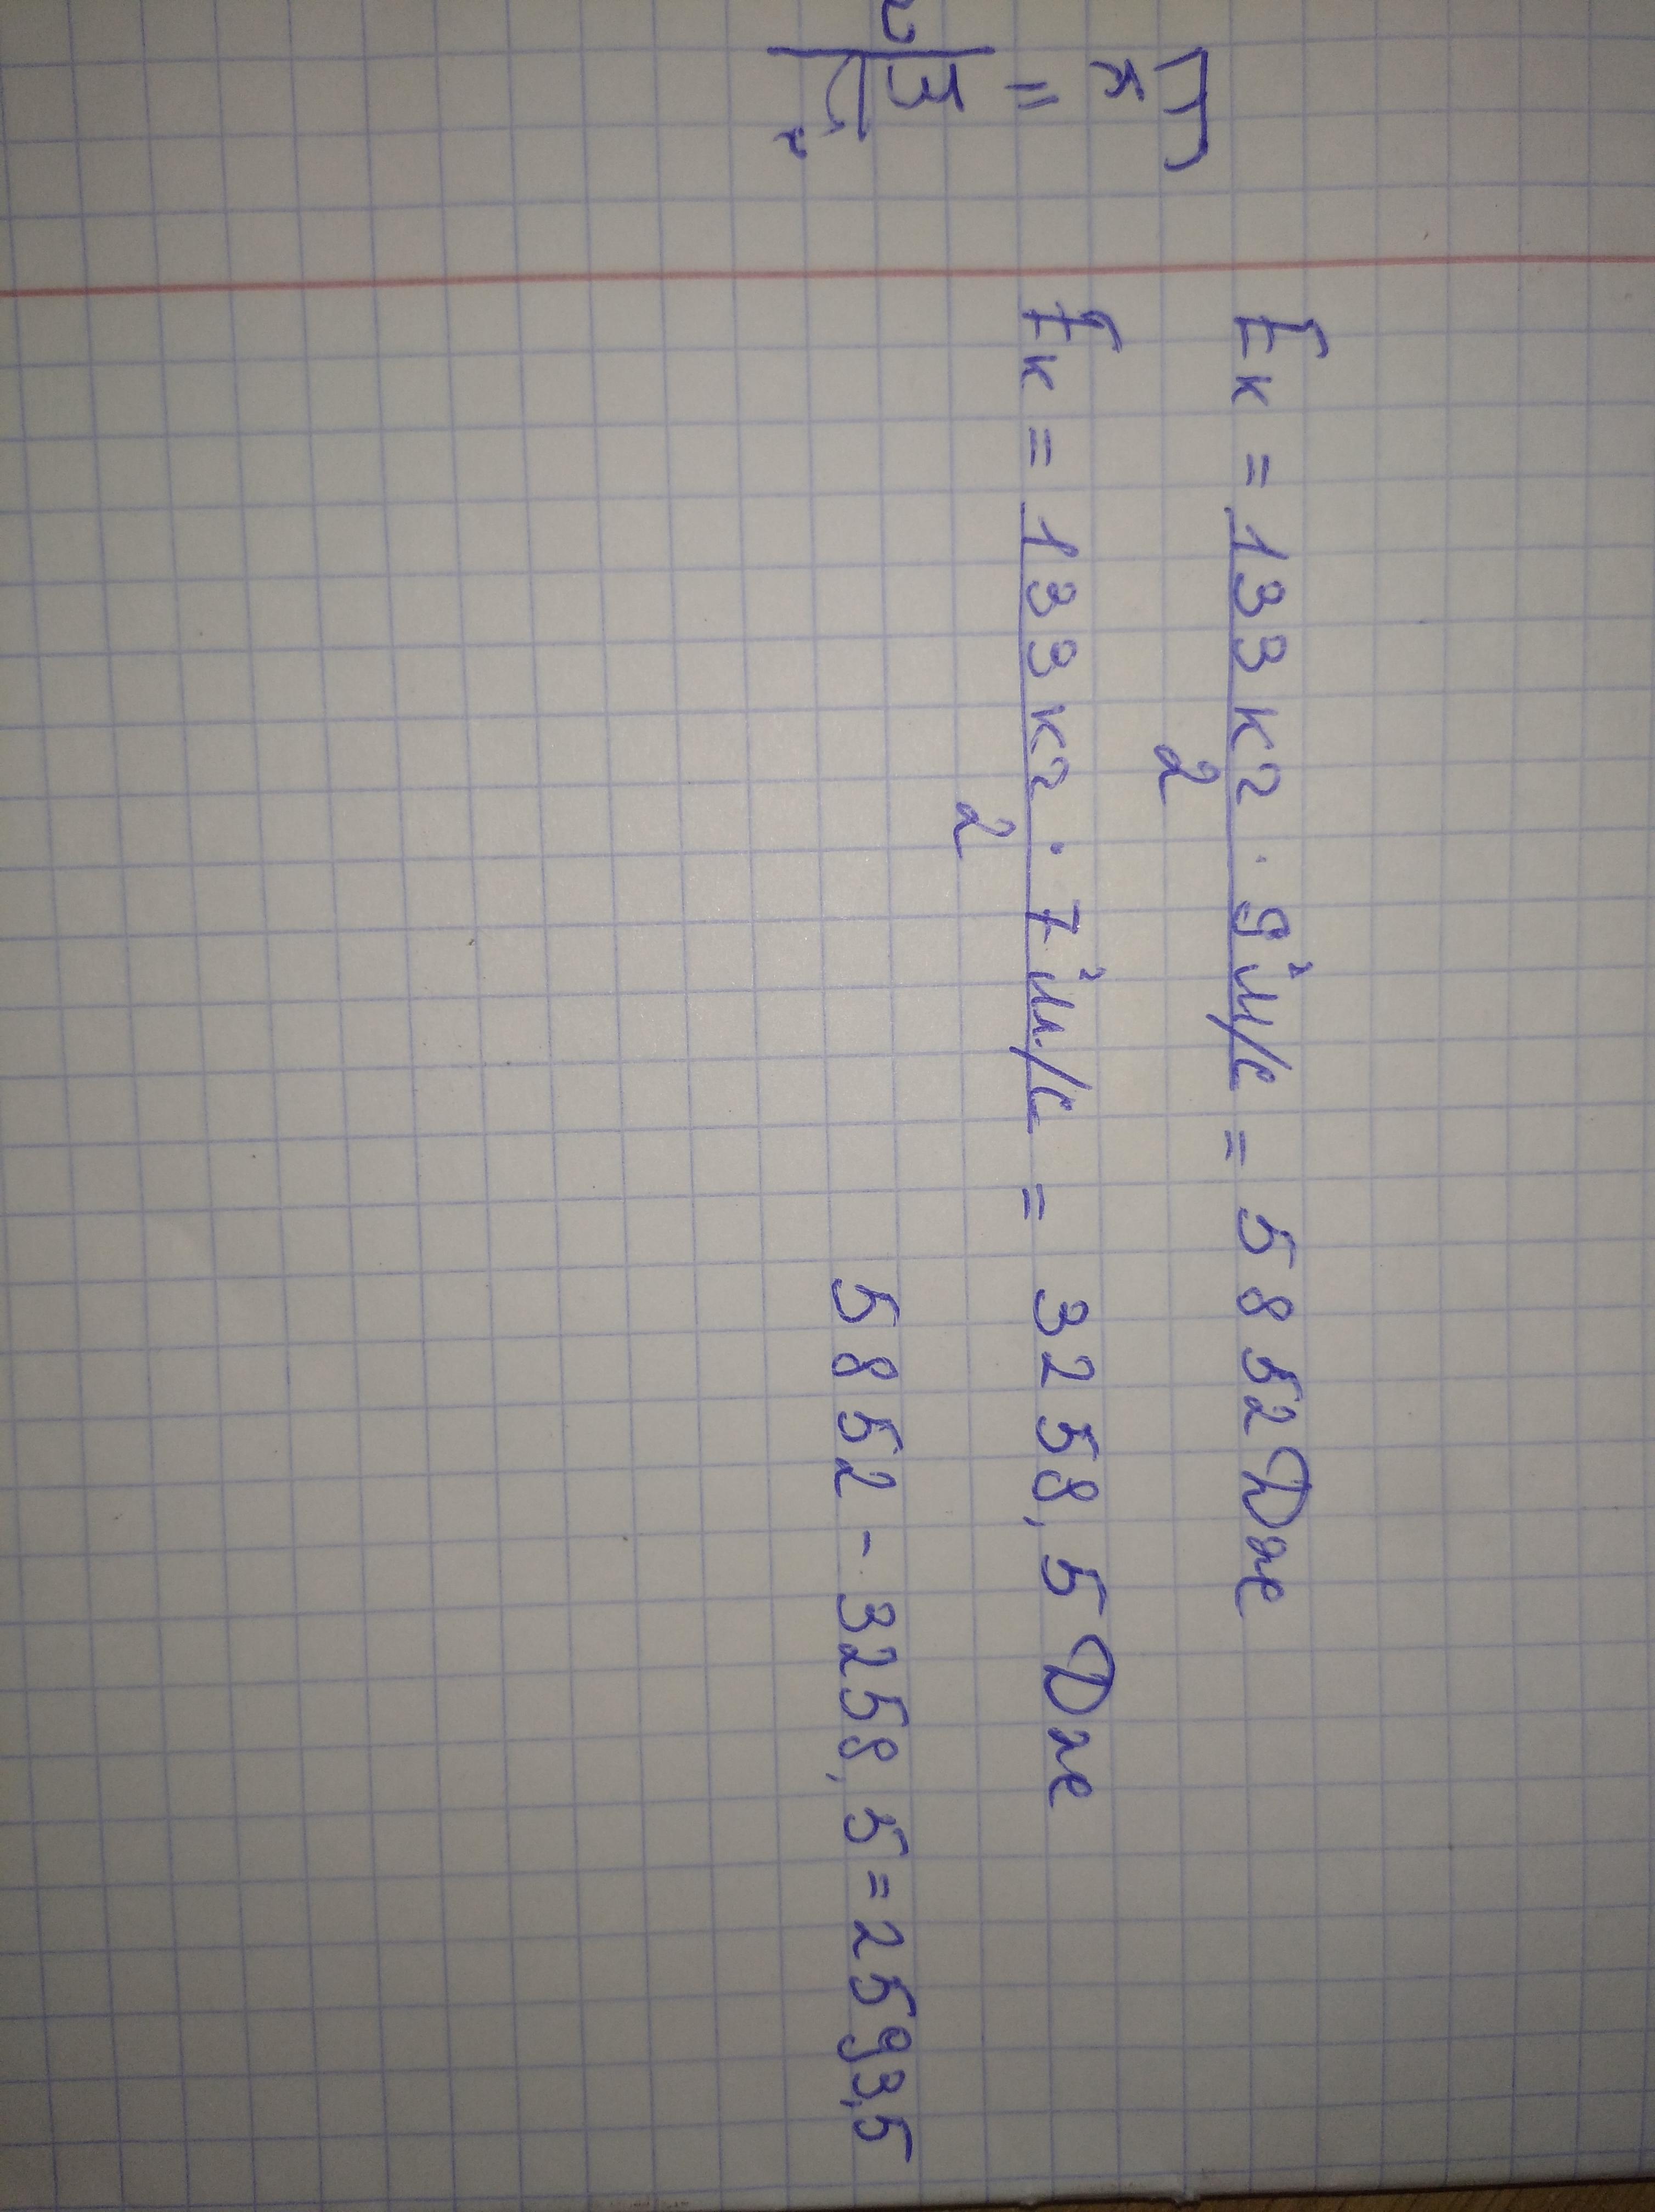 Eк = mv²
2
Eк = 133кг · 9²м/с = 5852Дж
2
Eк = 133кг · 7²м/с = 3258,5Дж
2
5852 - 3258,5 = 2593,5